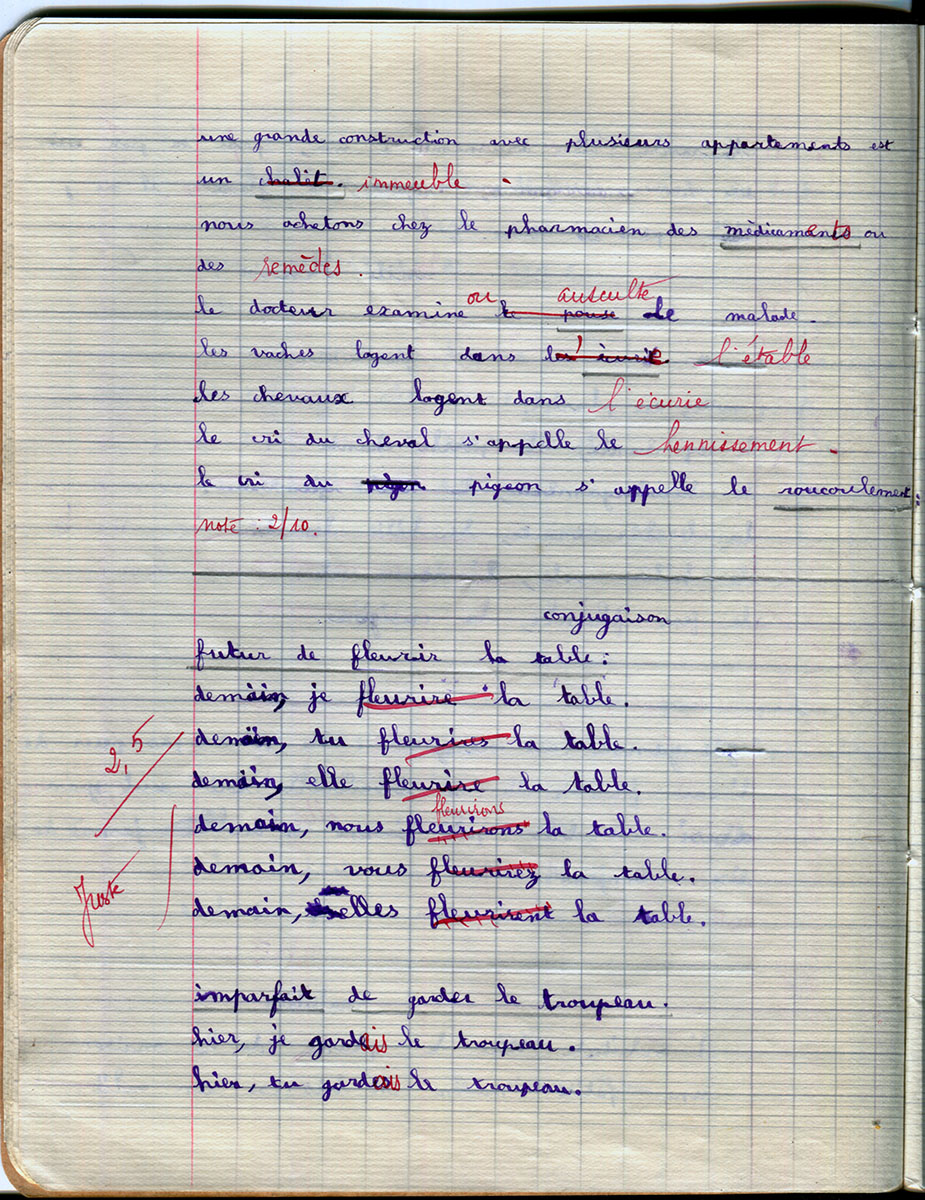 une grande construction avec plusieurs appartements est
un chalêt. immeuble .
nous achetons chez le pharmacien des médicaments ou
des remèdes.
ou ausculte
le docteur examine le pouse le malade.
les vaches logent dans l'écurie l'étable
les chevaux logent dans l'écurie
le cri du cheval s'appelle le hennissement.
le cri du pigon pigeon s'appelle le roucoulement.
note : 2/10.
conjugaison
futur de fleurir la table :
demain, je fleurire la table.
demain, tu fleuriras la table.
2,5
demain, elle fleurire la table.
fleurirons
demain, nous fleurirons la table.
demain, vous fleurirez la table.
Juste
demain, elles fleurirent la table.
imparfait de garder le troupeau.
hier, je gardais le troupeau.
hier, tu gardais le troupeau.